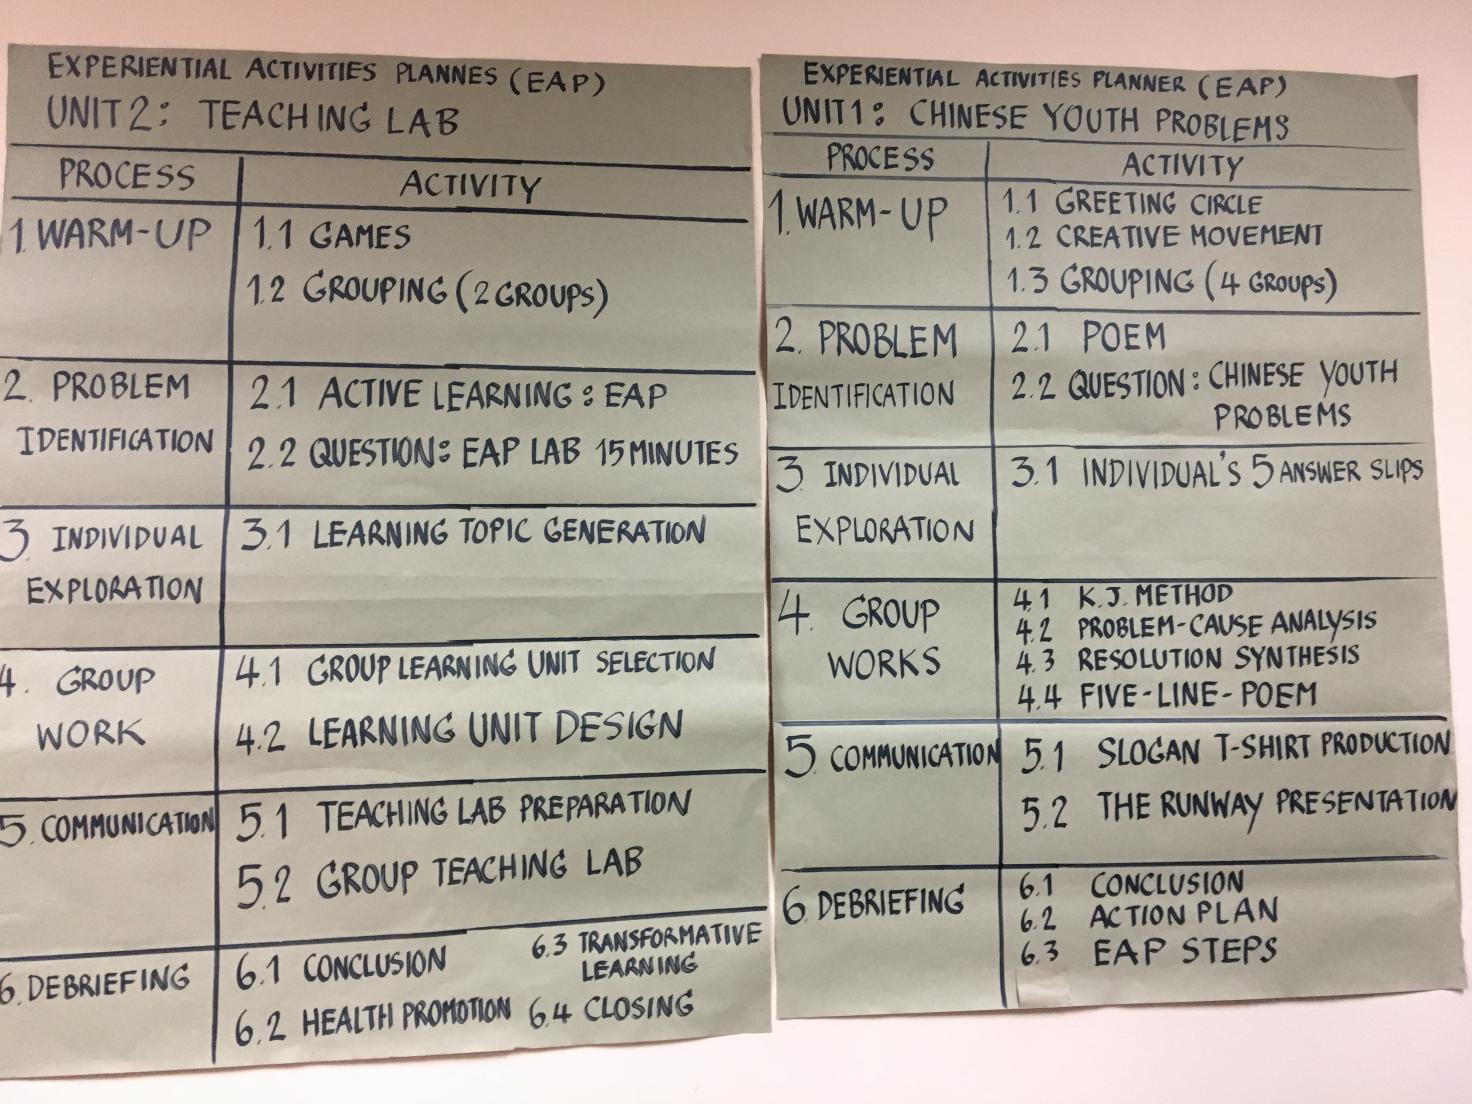 EXPERIENTIAL ACTIVITIES PLANNES (EAP)
UNIT 2: TEACHING LAB
PROCESS ACTIVITY
1. WARM-UP 1.1 GAMES
1.2 GROUPING (2 GROUPS)
2. PROBLEM 2.1 ACTIVE LEARNING : EAP
IDENTIFICATION 2.2 QUESTION: EAP LAB 15 MINUTES
3. INDIVIDUAL 3.1 LEARNING TOPIC GENERATION
EXPLORATION
4. GROUP 4.1 GROUP LEARNING UNIT SELECTION
WORK 4.2 LEARNING UNIT DESIGN
5. COMMUNICATION 5.1 TEACHING LAB PREPARATION
5.2 GROUP TEACHING LAB
6. DEBRIEFING 6.1 CONCLUSION 6.3 TRANSFORMATIVE
LEARNING
6.2 HEALTH PROMOTION 6.4 CLOSING
EXPERIENTIAL ACTIVITIES PLANNER (EAP)
UNIT 1: CHINESE YOUTH PROBLEMS
PROCESS ACTIVITY
1. WARM-UP 1.1 GREETING CIRCLE
1.2 CREATIVE MOVEMENT
1.3 GROUPING (4 GROUPS)
2. PROBLEM 2.1 POEM
IDENTIFICATION 2.2 QUESTION: CHINESE YOUTH
PROBLEMS
3. INDIVIDUAL 3.1 INDIVIDUAL'S 5 ANSWER SLIPS
EXPLORATION
4. GROUP 4.1 K.J. METHOD
4.2 PROBLEM-CAUSE ANALYSIS
WORKS 4.3 RESOLUTION SYNTHESIS
4.4 FIVE-LINE-POEM
5. COMMUNICATION 5.1 SLOGAN T-SHIRT PRODUCTION
5.2 THE RUNWAY PRESENTATION
6. DEBRIEFING 6.1 CONCLUSION
6.2 ACTION PLAN
6.3 EAP STEPS